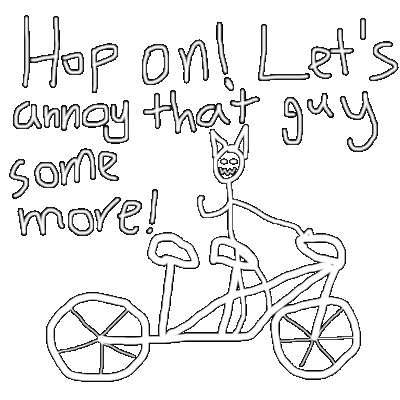 Hop on! Let's
annoy that guy
some
more!